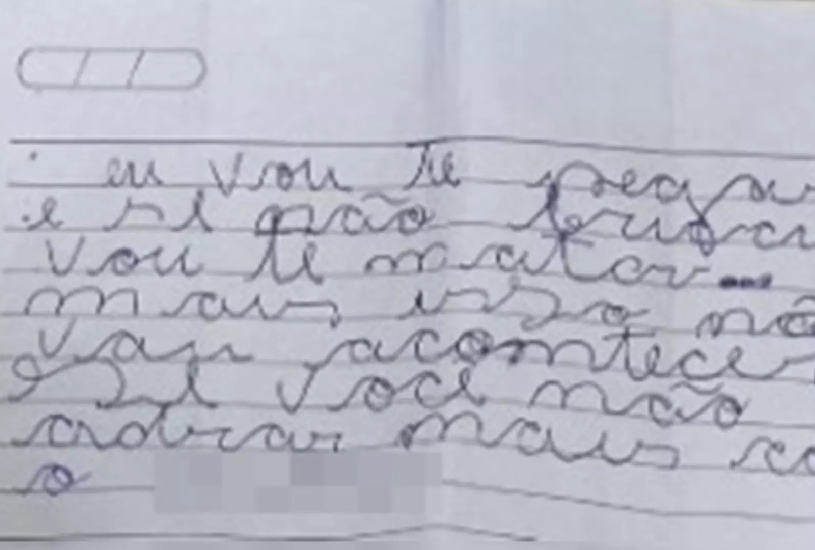 eu vou te pega
e si não
vou te matar...
mais isso nã
vau acomtecer
Se voce não
mais co
o